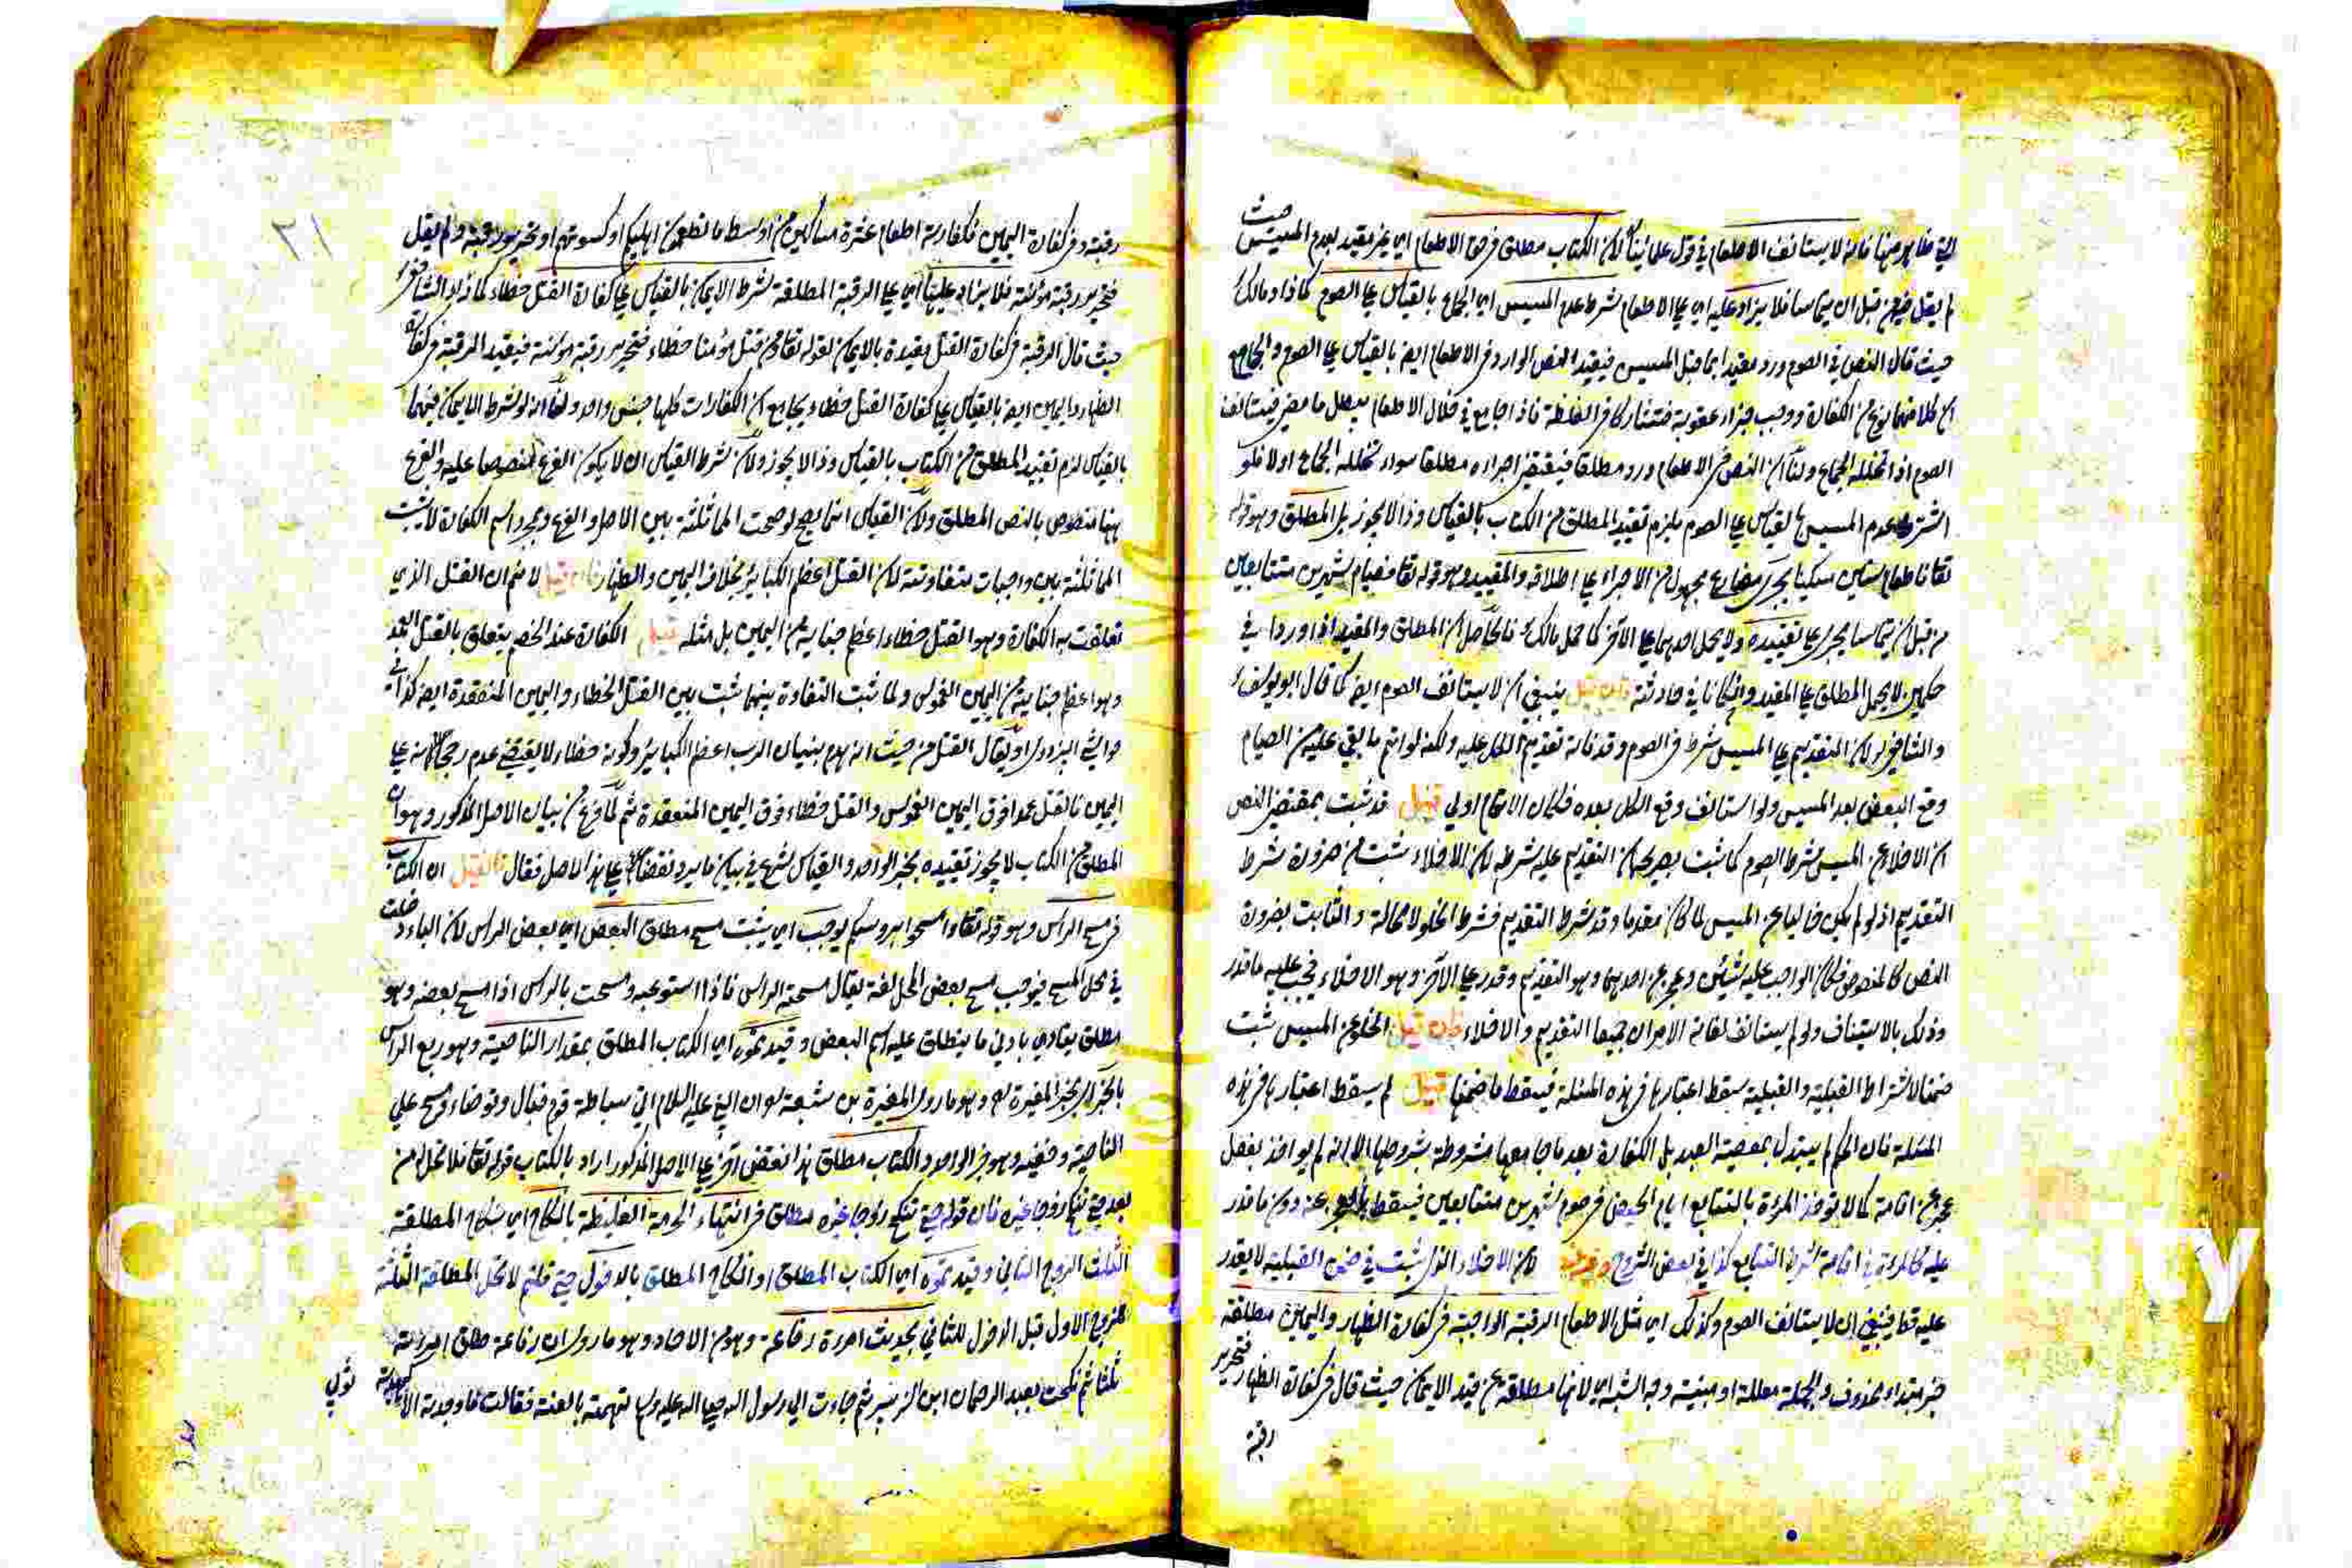 التي ظاهر منها فانه لا يستانف الاطعام في قول علمائنا لان الكتاب مطلق في حق الاطعام اي غير مقيد بعدم المسيس حيث
لم يقل فيه من قبل ان يتماسا فلا يزاد عليه اي على الاطعام شرط عدم المسيس اي الجماع بالقياس على الصوم كما زاد مالك
حيث قال النص في الصوم ورد مقيدا بما قبل المسيس فيقيد النص الوارد في الاطعام ايضا بالقياس على الصوم والجامع
ان كلا منهما نوع من الكفارة ووجب جزاء عقوبة فتشاركا في الغلظة فاذا جامع في خلال الاطعام يبطل ما مضى فيستانف
الصوم اذا تخلله الجماع ولنا ان النص في الاطعام ورد مطلقا فيقتضي اجراءه مطلقا سواء تخلله الجماع او لا فلو
اشترط عدم المسيس بالقياس على الصوم يلزم تقييد المطلق من الكتاب بالقياس وذا لا يجوز بل المطلق وهو قوله
تعا فاطعام ستين مسكينا يجرى مضارع مجهول من الاجراء على اطلاقه والمقيد وهو قوله تعا فصيام شهرين متتابعين
من قبل ان يتماسا يجرى على تقييده ولا يحمل احدهما على الآخر كما حمل مالك فالحاصل ان المطلق والمقيد اذا وردا في
حكمين لا يحمل المطلق على المقيد وان كانا في حادثة فان قيل ينبغي ان لا يستانف الصوم ايضا كما قال ابو يوسف
والشافعي لان التقديم على المسيس شرط في الصوم وقد فاته تقديم الكل عليه ولكنه لو اتم ما بقي عليه من الصيام
وقع البعض بعد المسيس ولو استانف وقع الكل بعده فكان الاتمام اولى قيل قد ثبت بمقتضى النص
ان الاخلاء عن المسيس شرط الصوم كما ثبت بصريحه ان التقديم عليه شرط لان الاخلاء يثبت من ضرورة شرط
التقديم اذ لو لم يكن خاليا عن المسيس لما كان مقدما وقد شرط التقديم فشرط الخلو لا محالة والثابت بضرورة
النص كالمنصوص فكان الواجب عليه شيئين وعجز عن احدهما وهو التقديم وقدر على الآخر وهو الاخلاء فيجب عليه ما قدر
وذلك بالاستيناف ولو لم يستانف لفاته الامران جميعا التقديم والاخلاء فان قيل الخلو عن المسيس ثبت
ضمنا لاشتراط القبلية والقبلية سقط اعتبارها في هذه المسئلة فيسقط ما ضمنها قيل لم يسقط اعتبارها في هذه
المسئلة فان الحكم لم يتبدل بمعصية العبد بل الكفارة بعد ما جامعها مشروطة بشروطها الا انه لم يواخذ بفعل
عجز عن اقامته كما لا تؤخذ المرأة بالتتابع ايام الحيض في صوم شهرين متتابعين فيسقط ما عجز عنه دون ما قدر
عليه كالمرأة في اقامة شرط التتابع كذا في بعض الشروح لان الاخلاء الذي ثبت في ضمن القبلية لا يقدر
عليه قط فينبغي ان لا يستانف الصوم وكذلك اي مثل الاطعام الرقبة الواجبة في كفارة الظهار واليمين مطلقة
خبر مبتداء محذوف والجملة معللة او مبينة وجه الشبه اي لانها مطلقة عن قيد الايمان حيث قال في كفارة الظهار فتحرير
رقبة
٢١
رقبة وفي كفارة اليمين فكفارته اطعام عشرة مساكين من اوسط ما تطعمون اهليكم او كسوتهم او تحرير رقبة ولم يقل
فتحرير رقبة مؤمنة فلا يزاد عليها اي على الرقبة المطلقة شرط الايمان بالقياس على كفارة القتل خطاء كما زاد الشافعي
حيث قال الرقبة في كفارة القتل مقيدة بالايمان لقوله تعا ومن قتل مؤمنا خطاء فتحرير رقبة مؤمنة فيقيد الرقبة في كفارة
الظهار واليمين ايضا بالقياس على كفارة القتل خطاء بجامع ان الكفارات كلها جنس واحد ولنا انه لو شرط الايمان فيهما
بالقياس لزم تقييد المطلق من الكتاب بالقياس وذا لا يجوز ولان شرط القياس ان لا يكون الفرع منصوصا عليه والفرع
ههنا منصوص بالنص المطلق ولان القياس انما يصح لو صحت المماثلة بين الاصل والفرع وبمجرد اسم الكفارة لا يثبت
المماثلة بين واجبات متفاوتة لان القتل اعظم الكبائر بخلاف اليمين والظهار فان قيل لا نم ان القتل الذي
تعلقت به الكفارة وهو القتل خطاء اعظم جناية من اليمين بل مثله قيل الكفارة عند الخصم يتعلق بالقتل العمد
وهو اعظم جناية من اليمين الغموس ولما ثبت التفاوة بينهما ثبت بين القتل الخطاء واليمين المنعقدة ايضا كذا في
حواشي البزدوي او يقال القتل من حيث انه هدم بنيان الرب اعظم الكبائر وكونه خطاء لا يقتضي عدم رجحانه على
اليمين فالقتل عمدا فوق اليمين الغموس والقتل خطاء فوق اليمين المنعقدة ثم لما فرغ من بيان الاصل المذكور وهو ان
المطلق من الكتاب لا يجوز تقييده بخبر الواحد والقياس شرع في بيان ما يرد نقضا على هذا الاصل فقال فان قيل ان الكتاب
في مسح الراس وهو قوله تعا وامسحوا برؤسكم يوجب اي يثبت مسح مطلق البعض اي بعض الراس لان الباء دخلت
في محل المسح فيوجب مسح بعض المحل لغة يقال مسحت الراس فاذا استوعبه ومسحت بالراس اذا مسح بعضه وهو
مطلق يتادي بادنى ما ينطلق عليه اسم البعض وقيدتموه اي الكتاب المطلق بمقدار الناصية وهو ربع الراس
بالخبر اي بخبر المغيرة وهو ما روى المغيرة بن شعبة ان النبي عليه السلام اتى سباطة قوم فبال وتوضاء ومسح على
الناصية وخفيه وهو خبر الواحد والكتاب مطلق هذا نقض آخر على الاصل المذكور اراد بالكتاب قوله تعا فلا تحل له من
بعد حتى تنكح زوجا غيره فان قوله حتى تنكح زوجا غيره مطلق في انتهاء الحرمة الغليظة بالنكاح اي نكاح المطلقة
الثلث الزوج الثاني وقيدتموه اي الكتاب المطلق او النكاح المطلق بالدخول حتى قلتم لا تحل المطلقة الثلثة
للزوج الاول قبل الدخول للثاني بحديث امرءة رفاعة وهو من الاحاد وهو ما روى ان رفاعة طلق امرءته
ثلثا ثم نكحت بعبد الرحمان ابن الزبير ثم جاءت الى رسول الله صلى الله عليه وسلم تتهمه بالعنة فقالت ما وجدته الا كهدبة
ثوبي